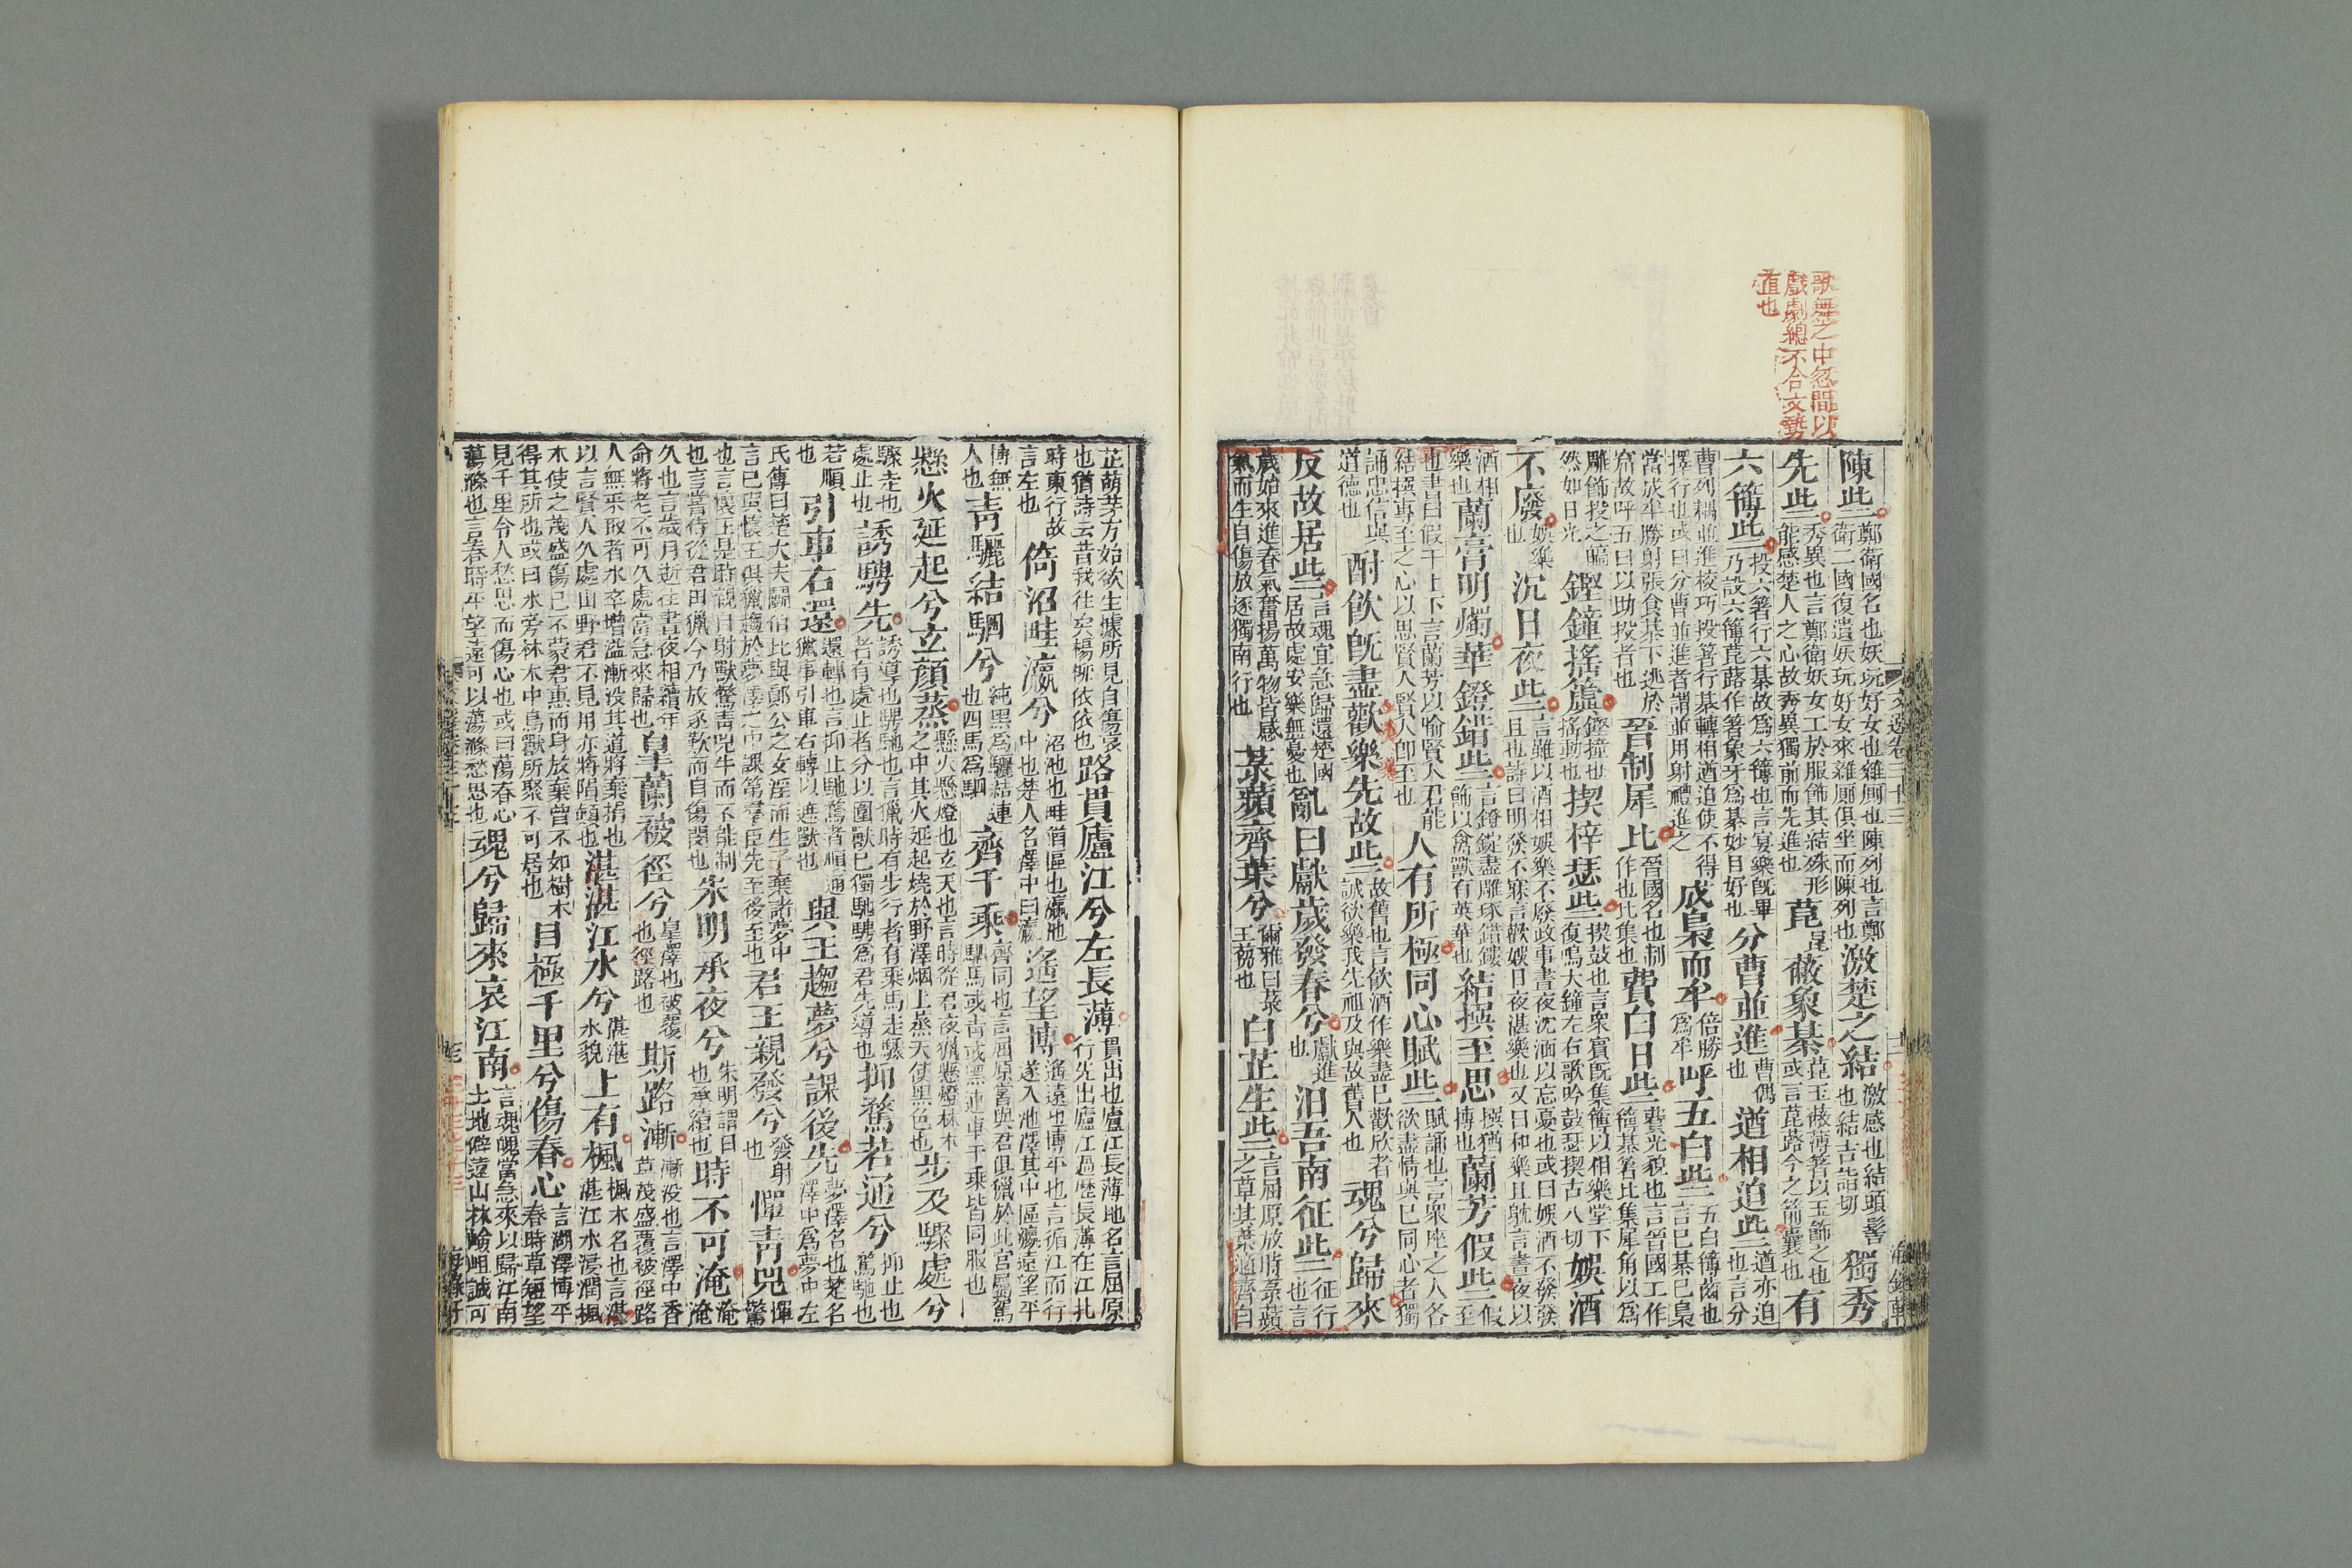 歌舞之中忽間以
戲劇總不合文勢
文選卷三十三
陳些鄭衛國名也妖玩好女也雜厠也陳列也言鄭衛二國復遺妖玩好女來雜厠俱坐而陳列也激楚之結激感也結頭髻也結吉詣切獨秀
先些秀異也言鄭衛妖女工於服飾其結殊形能感楚人之心故秀異獨前而先進也菎昆蔽象棊菎玉蔽簙箸以玉飾之也或言菎蕗今之箭囊也有
六簙些投六箸行六棊故爲六簙也言宴樂旣畢乃設六簙菎蕗作箸象牙爲棊妙且好也分曹並進曹偶也遒相迫些遒亦迫也言分
曹列耦並進棱巧投箸行棊轉相遒迫使不得擇行也或曰分曹並進者謂並用射禮進之成梟而牟倍勝爲牟呼五白些五白簙齒也言己棊已梟
當成牟勝射張食棊下逃於窟故呼五白以助投者也晉制犀比晉國名也制作也比集也費白日些費光貌也言晉國工作簙棊箸比集犀角以爲
雕飾投之皜然如日光鏗鐘搖簴鏗撞也搖動也揳梓瑟些揳鼓也言衆賓旣集簙以相樂堂下復鳴大鐘左右歌吟鼓瑟揳古八切娛酒
不廢娛樂也沉日夜些言雖以酒相娛樂不廢政事晝夜沈湎以忘憂也或曰娛酒不發發旦也詩曰明發不寐言歡娛日夜湛樂也又曰和樂且躭言晝夜以
酒相樂也蘭膏明燭華鐙錯些言鐙錠盡雕琢錯鏤飾以禽獸有英華也結撰至思撰猶博也蘭芳假些假至
也書曰假于上下言蘭芳以喻賢人君能結撰專至之心以思賢人賢人卽至也人有所極同心賦些賦誦也言衆座之人各欲盡情與己同心者獨
誦忠信與道德也酎飲旣盡歡樂先故些故舊也言飲酒作樂盡己歡欣者誠欲樂我先祖及與故舊人也魂兮歸來
反故居些言魂宜急歸還楚國居故處安樂無憂也亂曰獻歲發春兮獻進也汩吾南征些征行也言
歲始來進春氣奮揚萬物皆感氣而生自傷放逐獨南行也菉蘋齊葉兮爾雅曰菉王芻也白芷生些言屈原放時菉蘋之草其葉適齊白
芷萌芽方始欲生據所見自傷哀也猶詩云昔我往矣楊柳依依也路貫廬江兮左長薄貫出也廬江長薄地名言屈原行先出廬江過歷長薄在江北
時東行故言左也倚沼畦瀛兮沼池也畦猶區也瀛池中也楚人名澤中曰瀛遙望博遙遠也博平也言循江而行遂入池澤其中區瀛遠望平
博無人也青驪結駟兮純黑爲驪結連也四馬爲駟齊千乘齊同也言屈原嘗與君俱獵於此官屬駕駟馬或青或黑連車千乘皆同服也
懸火延起兮玄顏蒸懸火懸燈也玄天也言時從君夜獵懸燈林木之中其火延起燒於野澤烟上蒸天使黑色也步及驟處兮
驟走也處止也誘騁先誘導也騁馳也言獵時有步行者有乘馬走驟者有處止者分以圍獸己獨馳騁爲君先導也抑騖若通兮抑止也騖馳也
若順也引車右還還轉也言抑止馳騖者順通獵事引車右轉以遮獸也與王趨夢兮課後先夢澤名也楚名澤中爲夢中左
氏傳曰楚大夫鬭伯比與鄖公之女淫而生子棄諸夢中言己與懷王俱獵趨於夢澤之中課第羣臣先至後至也君王親發兮發射也憚青兕憚驚
也言懷王是時親自射獸驚青兕牛而不能制也言嘗侍從君田獵今乃放逐歎而自傷閔也朱明承夜兮朱明謂日也承續也時不可淹淹淹
久也言歲月逝往晝夜相續年命將老不可久處當急來歸也皐蘭被徑兮皐澤也被覆也徑路也斯路漸漸没也言澤中香草茂盛覆被徑路
人無采取者水卒增溢漸没其道將棄捐也以言賢人久處山野君不見用亦將隕顛也湛湛江水兮湛湛水貌上有楓楓木名也言湛湛江水浸潤楓
木使之茂盛傷己不蒙君惠而身放棄曾不如樹木得其所也或曰水旁林木中鳥獸所聚不可居也目極千里兮傷春心言湖澤博平春時草短望
見千里令人愁思而傷心也或曰蕩春心蕩滌也言春時平望遠可以蕩滌愁思也魂兮歸來哀江南言魂魄當急來以歸江南土地僻遠山林嶮岨誠可